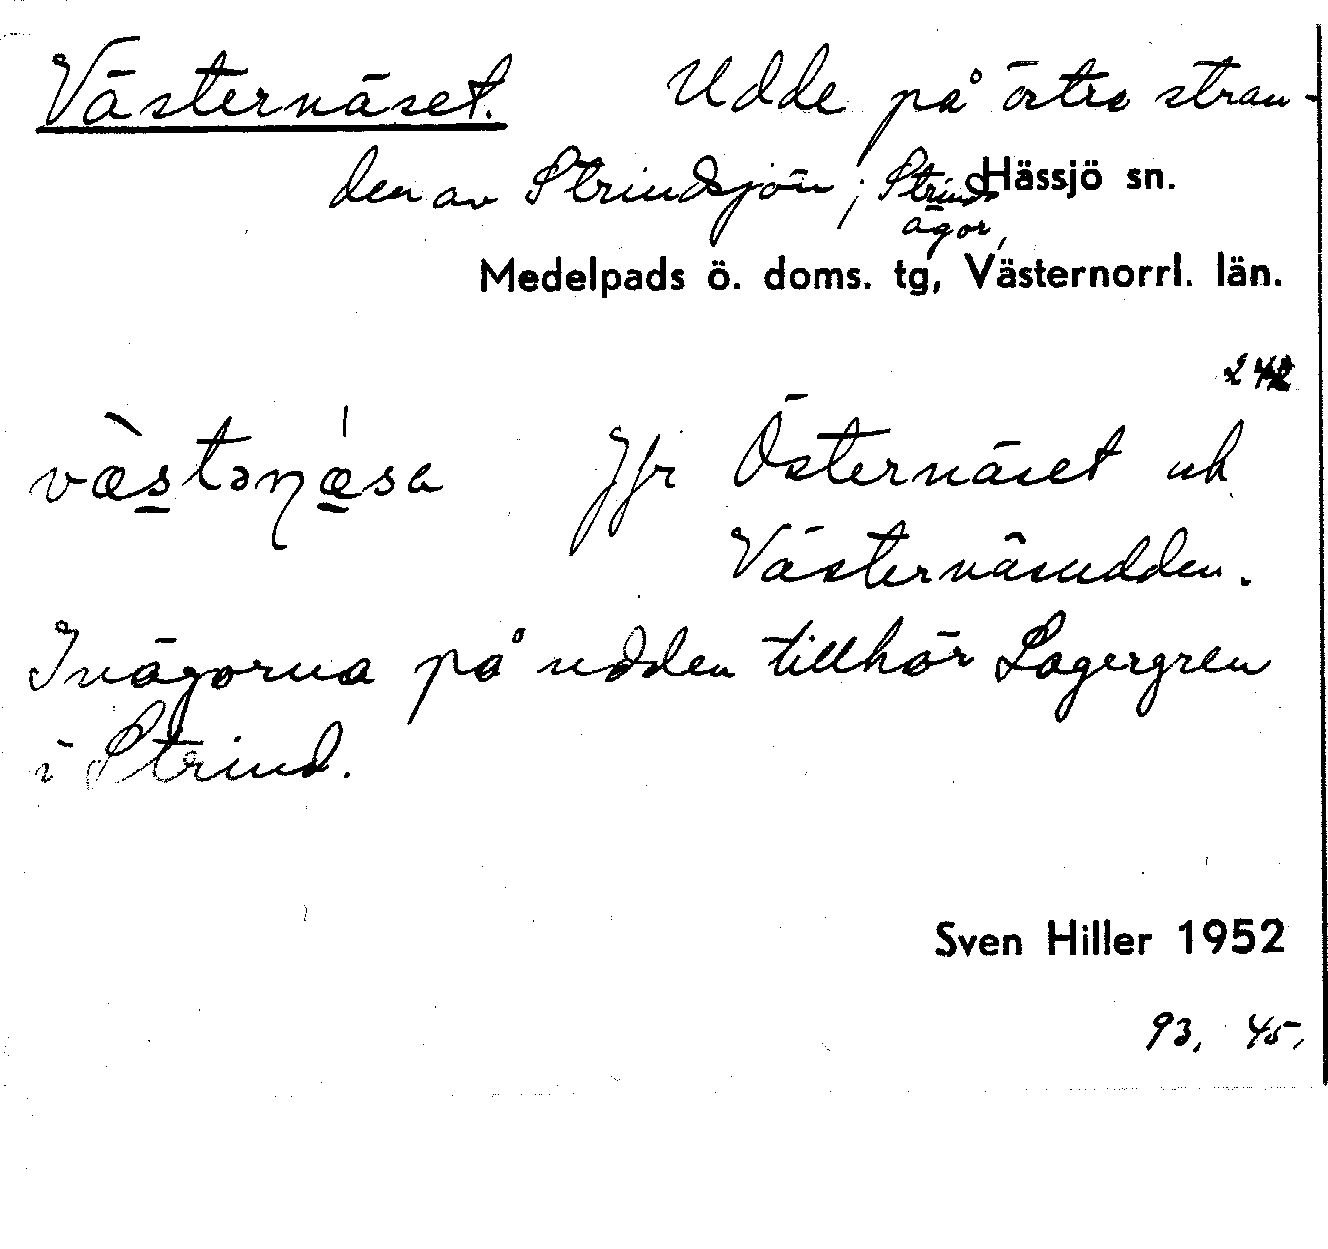 Västernäset. Udde på östra stran-
den av Strindsjön; Strinds
Hässjö sn.
ägor,
Medelpads ö. doms. tg, Västernorrl. län.
242
væ̀stəɳǽsa Jfr Östernäset och
Västernäsudden.
Inägorna på udden tillhör Lagergren
i Strind.
Sven Hiller 1952
93, 45,